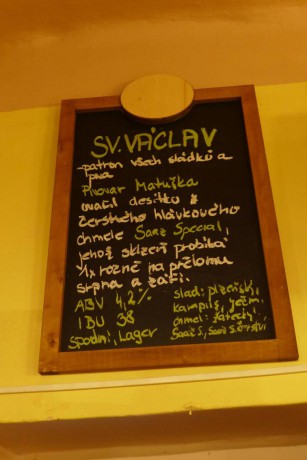 SV. VÁCLAV
-patron všech sládků a
piva
Pivovar Matuška
uvařil desítku z
čerstvého hlávkového
chmele Saaz Special,
jehož sklizeň probíhá
1x ročně na přelomu
srpna a září.
ABV 4,2%
IBU 38
spodní, Lager
slad: plzeňský,
ječm.
chmel: žatecký
Saaz S., Saaz S. čerství